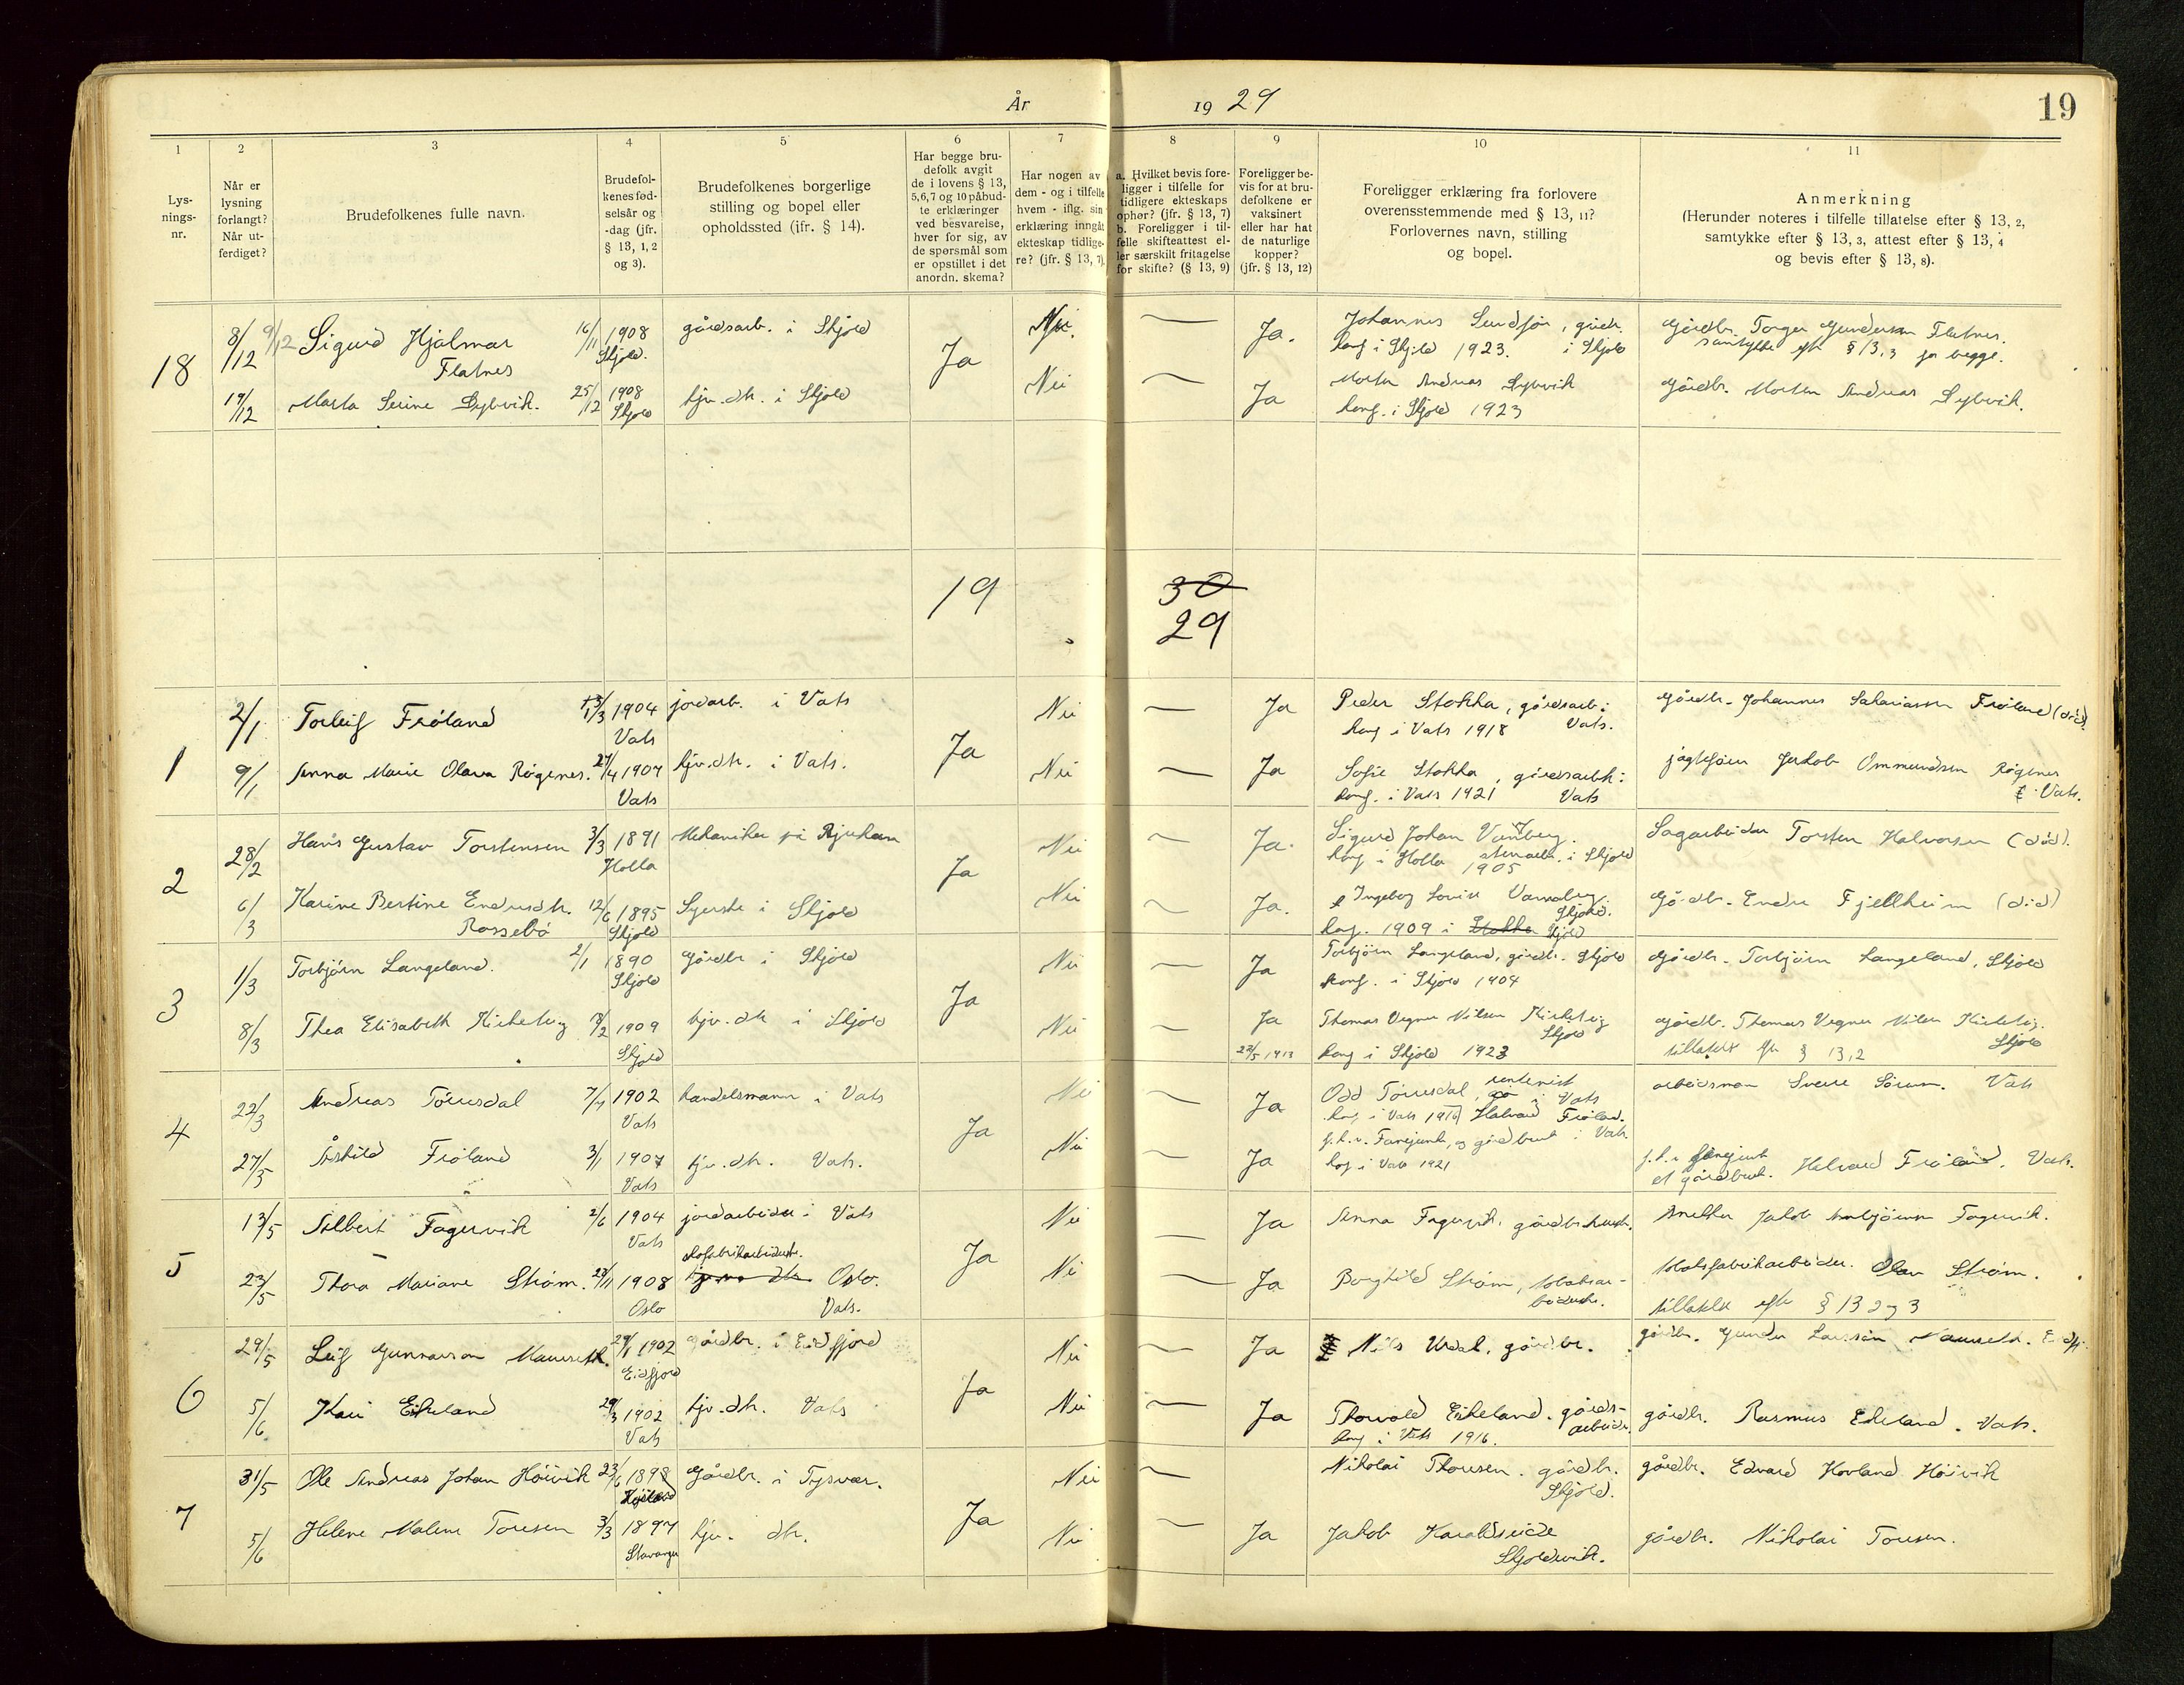 År 1929
19
1
2
3
4
5
6
7
8
9
10
11
Lys-
nings-
nr.
Når er
lysning
forlangt?
Når ut-
ferdiget?
Brudefolkenes fulle navn.
Brudefol-
kenes fød-
selsår og
-dag (jfr.
§ 13, 1, 2
og 3).
Brudefolkenes borgerlige
stilling og bopel eller
opholdssted (jfr. § 14).
Har begge bru-
defolk avgit
de i lovens § 13,
5,6,7 og 10 påbud-
te erklæringer
ved besvarelse,
hver for sig, av
de spørsmål som
er opstillet i det
anordn. skema?
Har nogen av
dem - og i tilfelle
hvem - iflg. sin
erklæring inngåt
ekteskap tidlige-
re? (jfr. § 13, 7).
a. Hvilket bevis fore-
ligger i tilfelle for
tidligere ekteskaps
ophør? (jfr. § 13, 7)
b. Foreligger i til-
felle skifteattest el-
ler særskilt fritagelse
for skifte? (§ 13, 9)
Foreligger be-
vis for at bru-
defolkene er
vaksinert
eller har hat
de naturlige
kopper?
(jfr. § 13, 12)
Foreligger erklæring fra forlovere
overensstemmende med § 13, 11?
Forlovernes navn, stilling
og bopel.
Anmerkning
(Herunder noteres i tilfelle tillatelse efter § 13, 2,
samtykke efter § 13, 3, attest efter § 13, 4
og bevis efter § 13, 8).
18
8/12 9/12 Sigurd Hjalmar Flatnes 16/11 1908 Skjold. gårdsarb. i Skjold Ja Nei. — Ja. Johannes Sundfør, gårdb. i Skjold
konf i Skjold 1923.
Gårdbr. Torger Gundersen Flatnes.
samtykke eft § 13,3 for begge.
19/12 Marta Serine Dybvik. 25/12 1908 Skjold tjv. dtr. i Skjold Nei — Ja Morten Andreas Dybvik
konf. i Skjold 1923
Gårdbr. Morten Andreas Dybvik.
19 30
29
1
2/1 Torleif Frøland 13/3 1904 Vats jordarb. i Vats Ja Nei — Ja Peder Stokka, gårdsarb: Vats.
konf i Vats 1918
Gårdbr. Johannes Sakariassen Frøland (død).
9/1 Anna Marie Olava Røgenes. 27/4 1904 Vats tjv. dtr. i Vats. Nei — Ja Sofie Stokka, gårdsarb: Vats
konf. i Vats 1921
Jakob Ommundsen Røgenes
i Vats.
2
28/2 Hans Gustav Torstensen 3/3 1891 Holla Mekaniker på Rjukan Ja Nei — Ja. Sigurd Johan
konf i Holla 1905 i Skjold
Sagarbeider Torsten Halvorsen (død).
6/3 Karine Bertine Endresdtr. Rossebø 12/6 1895 Skjold Syerske i Skjold Nei — Ja. Ingeborg Lovise Skjold.
konf. 1909 i Stokka Skjold
Gårdbr. Endre Fjellheim (død)
3
1/3 Torbjørn Langeland. 2/1 1890 Skjold Gårdbr i Skjold Ja Nei — Ja Torbjørn Langeland, gårdbr. Skjold
konf. i Skjold 1904
Gårdbr. Torbjørn Langeland, Skjold
8/3 Thea Elisabeth 1909 Skjold tjv. dtr i Skjold Nei — Ja Thomas Vegner Nilsen Skjold
22/5 1913 konf i Skjold 1923
Gårdbr. Thomas Vegner Nilsen Skjold
tillatelse eft § 13,2
4
22/3 Andreas Tørresdal 1902 Vats handelsmann i Vats Ja Nei — Ja Odd Tørresdal, i Vats
Halvard Frøland.
Vats
27/3 Åshild Frøland 3/1 1907 Vats tjv. dtr. Vats. Nei — Ja
konf i Vats 1921
Halvard Frøland. Vats.
5
13/5 Albert Fagervik 2/6 1904 Vats jordarbeider i Vats Ja Nei — Ja Anna Fagervik, gårdbr. hustr.
Fagervik.
23/5 Thora Mariane Strøm. 1908 Oslo Oslo. Vats. Nei — Ja Borghild Strøm,
Olav Strøm.
tillatelse eft § 13 2 og 3
6
29/5 Leif Gunnarson 1902 Eidfjord gårdbr. i Eidfjord Ja Nei — Ja Nils Urdal, gårdbr.
gårdbr.
5/6 Kari Eikeland 29/3 1902 Vats tjv. dtr. Vats Nei — Ja Thorvald Eikeland. gårds-
arbeider
konf i Vats 1916.
gårdbr. Rasmus Eikeland. Vats.
7
31/5 Ole Andreas Johan Høivik 23/6 1898 Gårdbr. i Tysvær. Ja Nei — Nikolai Thoresen. gårdbr.
Skjold.
gårdbr. Edvard Hovland Høivik
5/6 Helene Malene Toresen 3/3 1897 Stavanger tjv. dtr. Nei — Ja Jakob Karaldseide
Skjoldevik.
gårdbr. Nikolai Toresen.